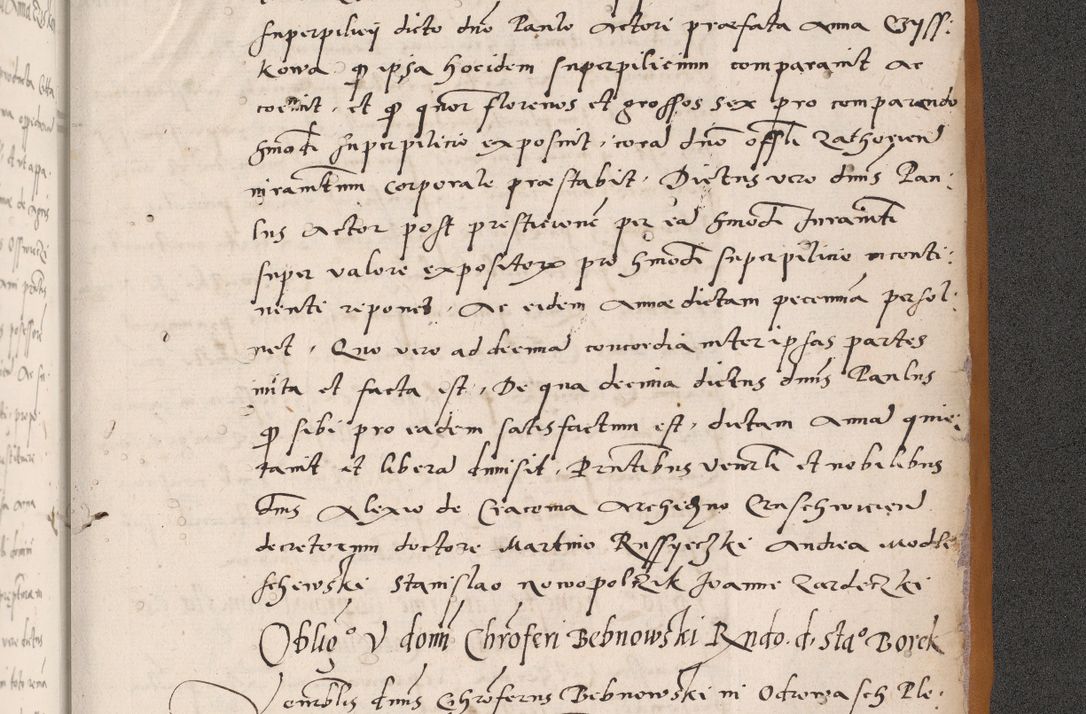 superpilicÿ dicto dno Paulo Actori præfata Anna Gÿss:
kowa qp ipsa hocidem superpilicium comparauit Ac
coemit, et qp quor florenos et grossos sex pro comparando
hmodi superpilicio exposuit, corā dno offli Zathorien
iuramtum corporale præstabit. Dictus vero dnus Pau:
lus Actor post prestationē per eā hmodi Iuramti
super valore expositorum pro hmodi superpilicio inconti:
nenti reponet. Ac eidem Annæ dictam pecuniā persol:
net, Quo vero ad decimā concordia inter ipsas partes
inita et facta est, De qua decima dictus dnus Paulus
qp sibi pro eadem satisfactum est, dictam Annā quie:
tauit et liberā dimisit, Prntibus venrli et nobilibus
dnis Alexio de Cracouia Archidno Cruschwicien
decretorum doctore Martino Russyeczki Andrea Modli
schewski Stanislao Nowopolszik Joanne Zardeczki
Obligo V domi Chroferi Bebnowski Rndo. d. Stao Borek
Venrblis dnus Chroferus Bebnowski in Odrowasch Ple: